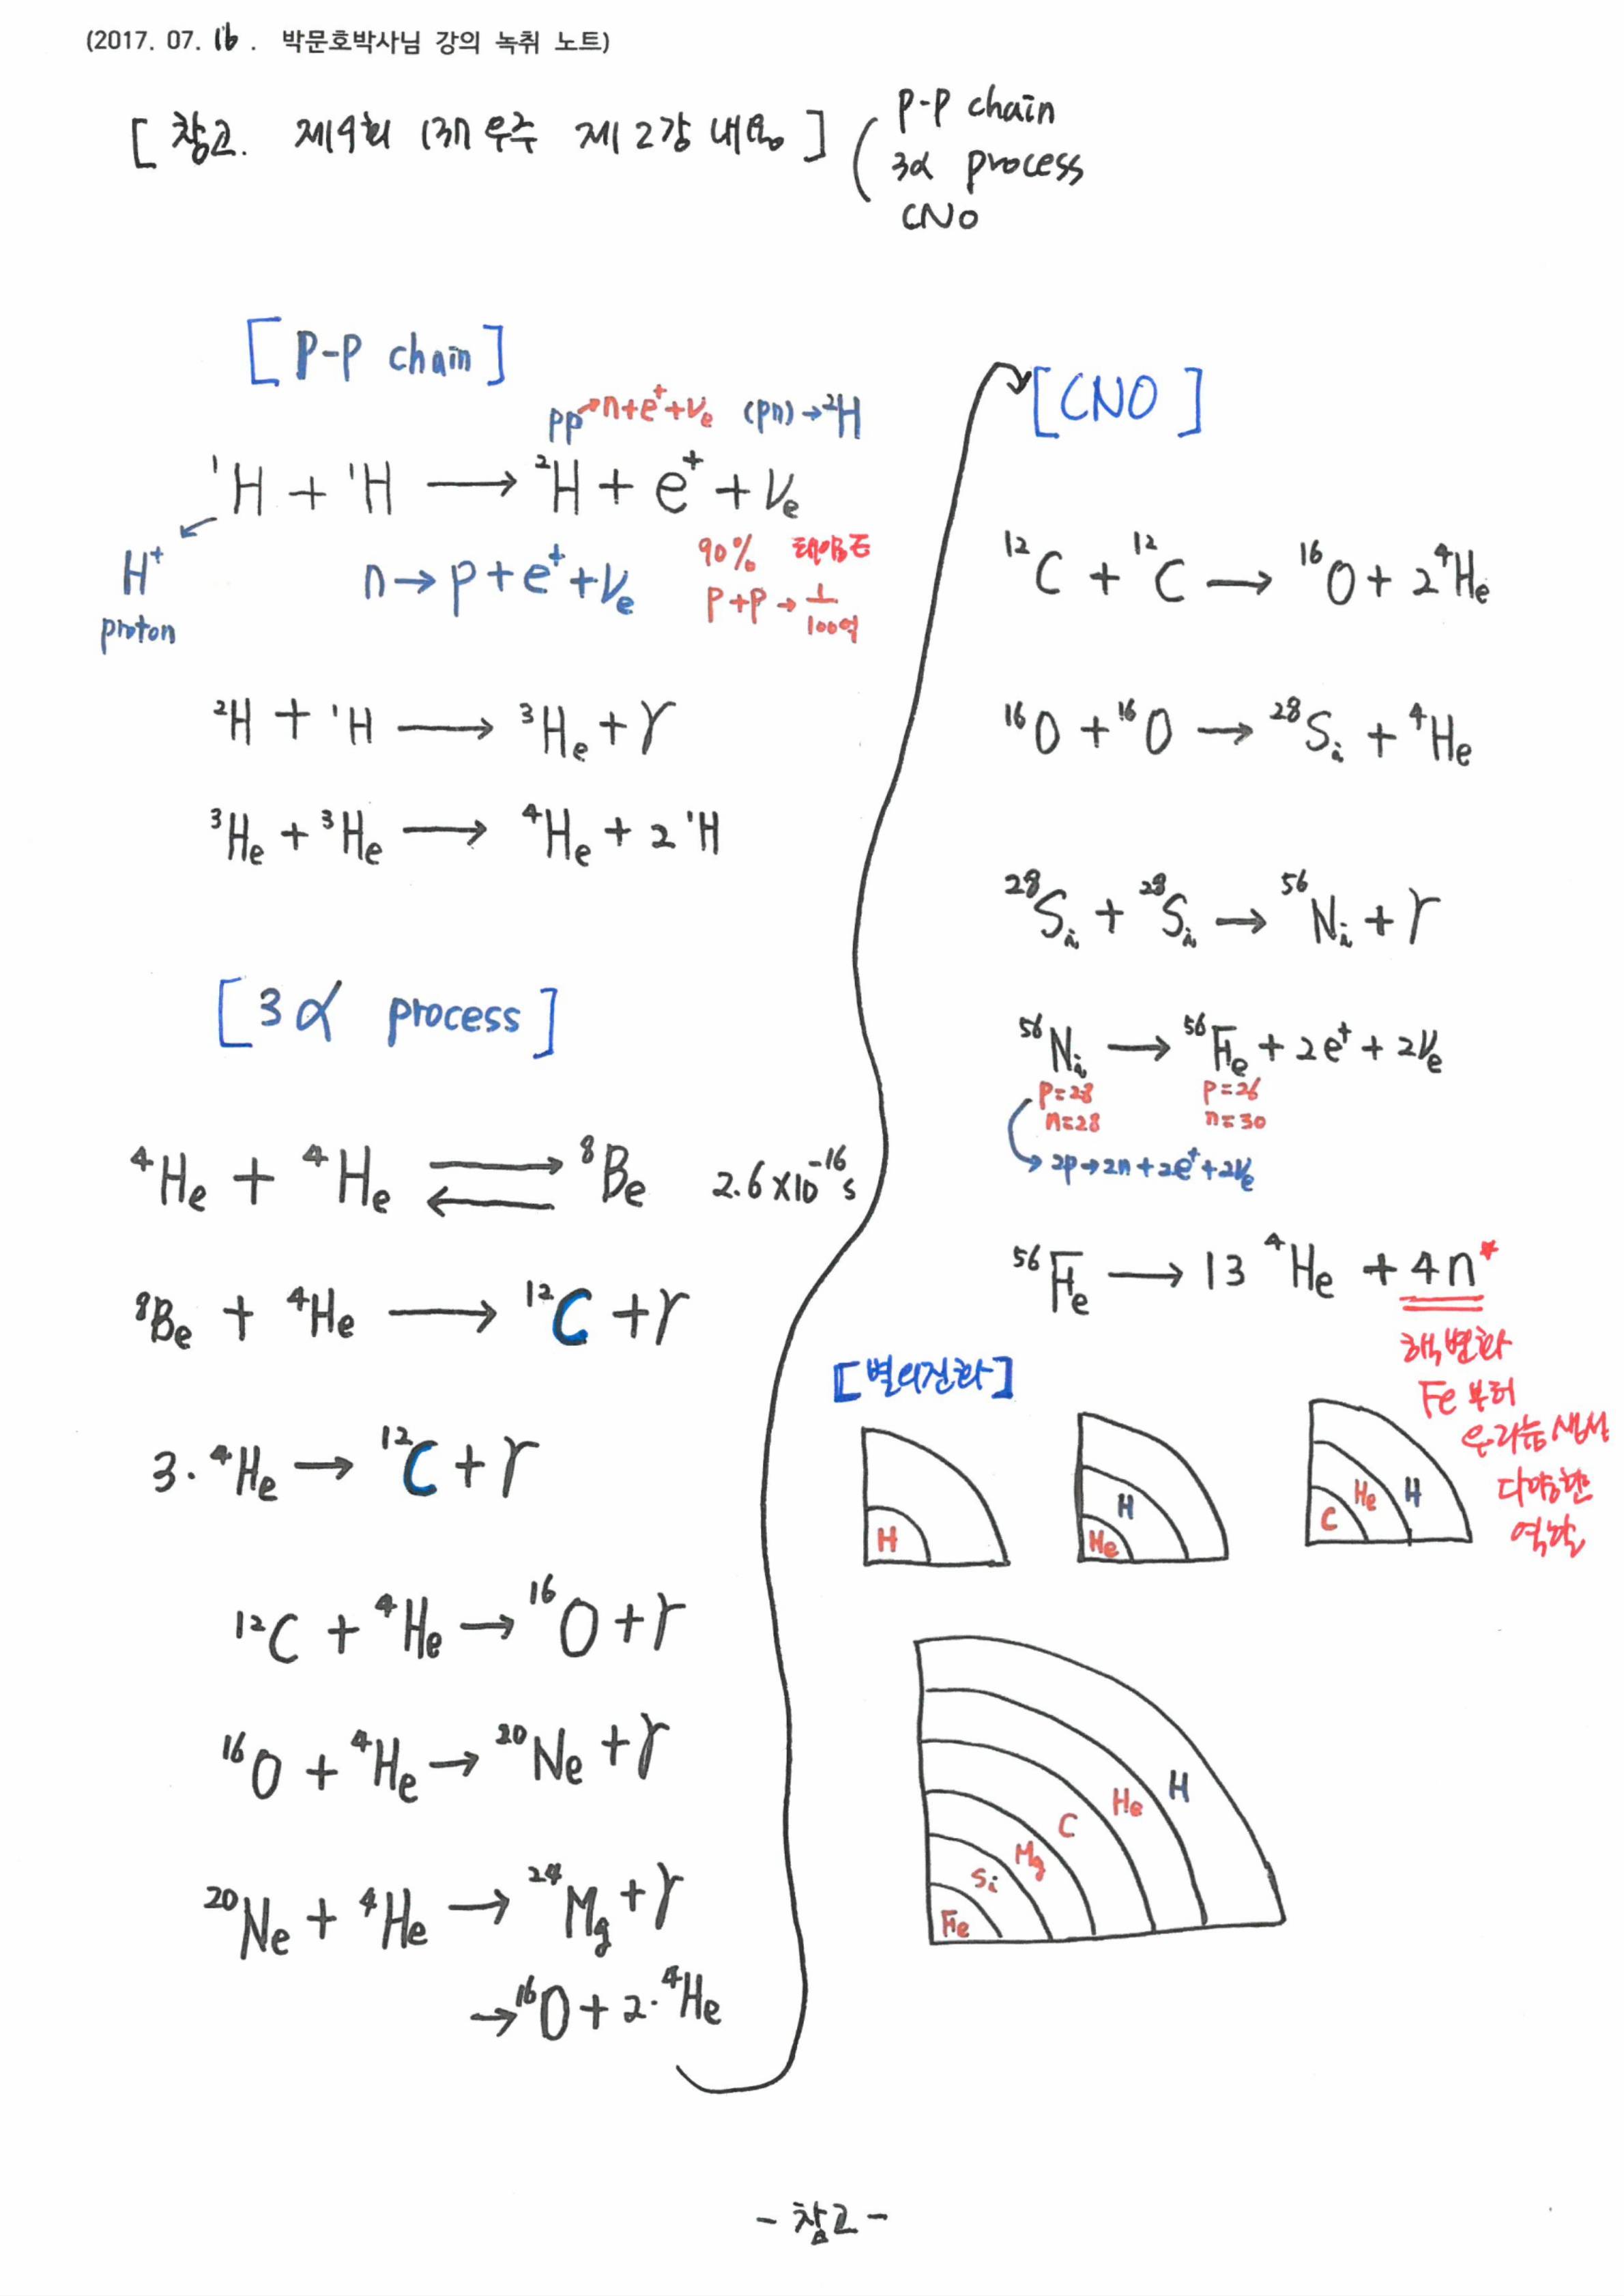 (2017. 07. 16. 박문호박사님 강의 녹취 노트)
[참고. 제9회 137 우주 제2강 내용]
p-p chain
3α process
CNO
[P-P chain]
pp→n+e⁺+νₑ (pn)→²H
¹H + ¹H → ²H + e⁺ + νₑ
H⁺
proton
n → p + e⁺ + νₑ
90% 태양도
P+P → 1/100억
²H + ¹H → ³He + γ
³He + ³He → ⁴He + 2 ¹H
[3α process]
⁴He + ⁴He ⇄ ⁸Be 2.6×10⁻¹⁶s
⁸Be + ⁴He → ¹²C + γ
3·⁴He → ¹²C + γ
¹²C + ⁴He → ¹⁶O + γ
¹⁶O + ⁴He → ²⁰Ne + γ
²⁰Ne + ⁴He → ²⁴Mg + γ
→ ¹⁶O + 2·⁴He
[CNO]
¹²C + ¹²C → ¹⁶O + 2⁴He
¹⁶O + ¹⁶O → ²⁸Si + ⁴He
²⁸Si + ²⁸Si → ⁵⁶Ni + γ
⁵⁶Ni → ⁵⁶Fe + 2e⁺ + 2νₑ
P=28 P=26
n=28 n=30
2p→2n+2e⁺+2νₑ
⁵⁶Fe → 13 ⁴He + 4n*
핵변화
Fe부터
우라늄 생성
다양한
역할
[별의진화]
H
H
He
C He H
H
He
C
Mg
Si
Fe
- 참고 -